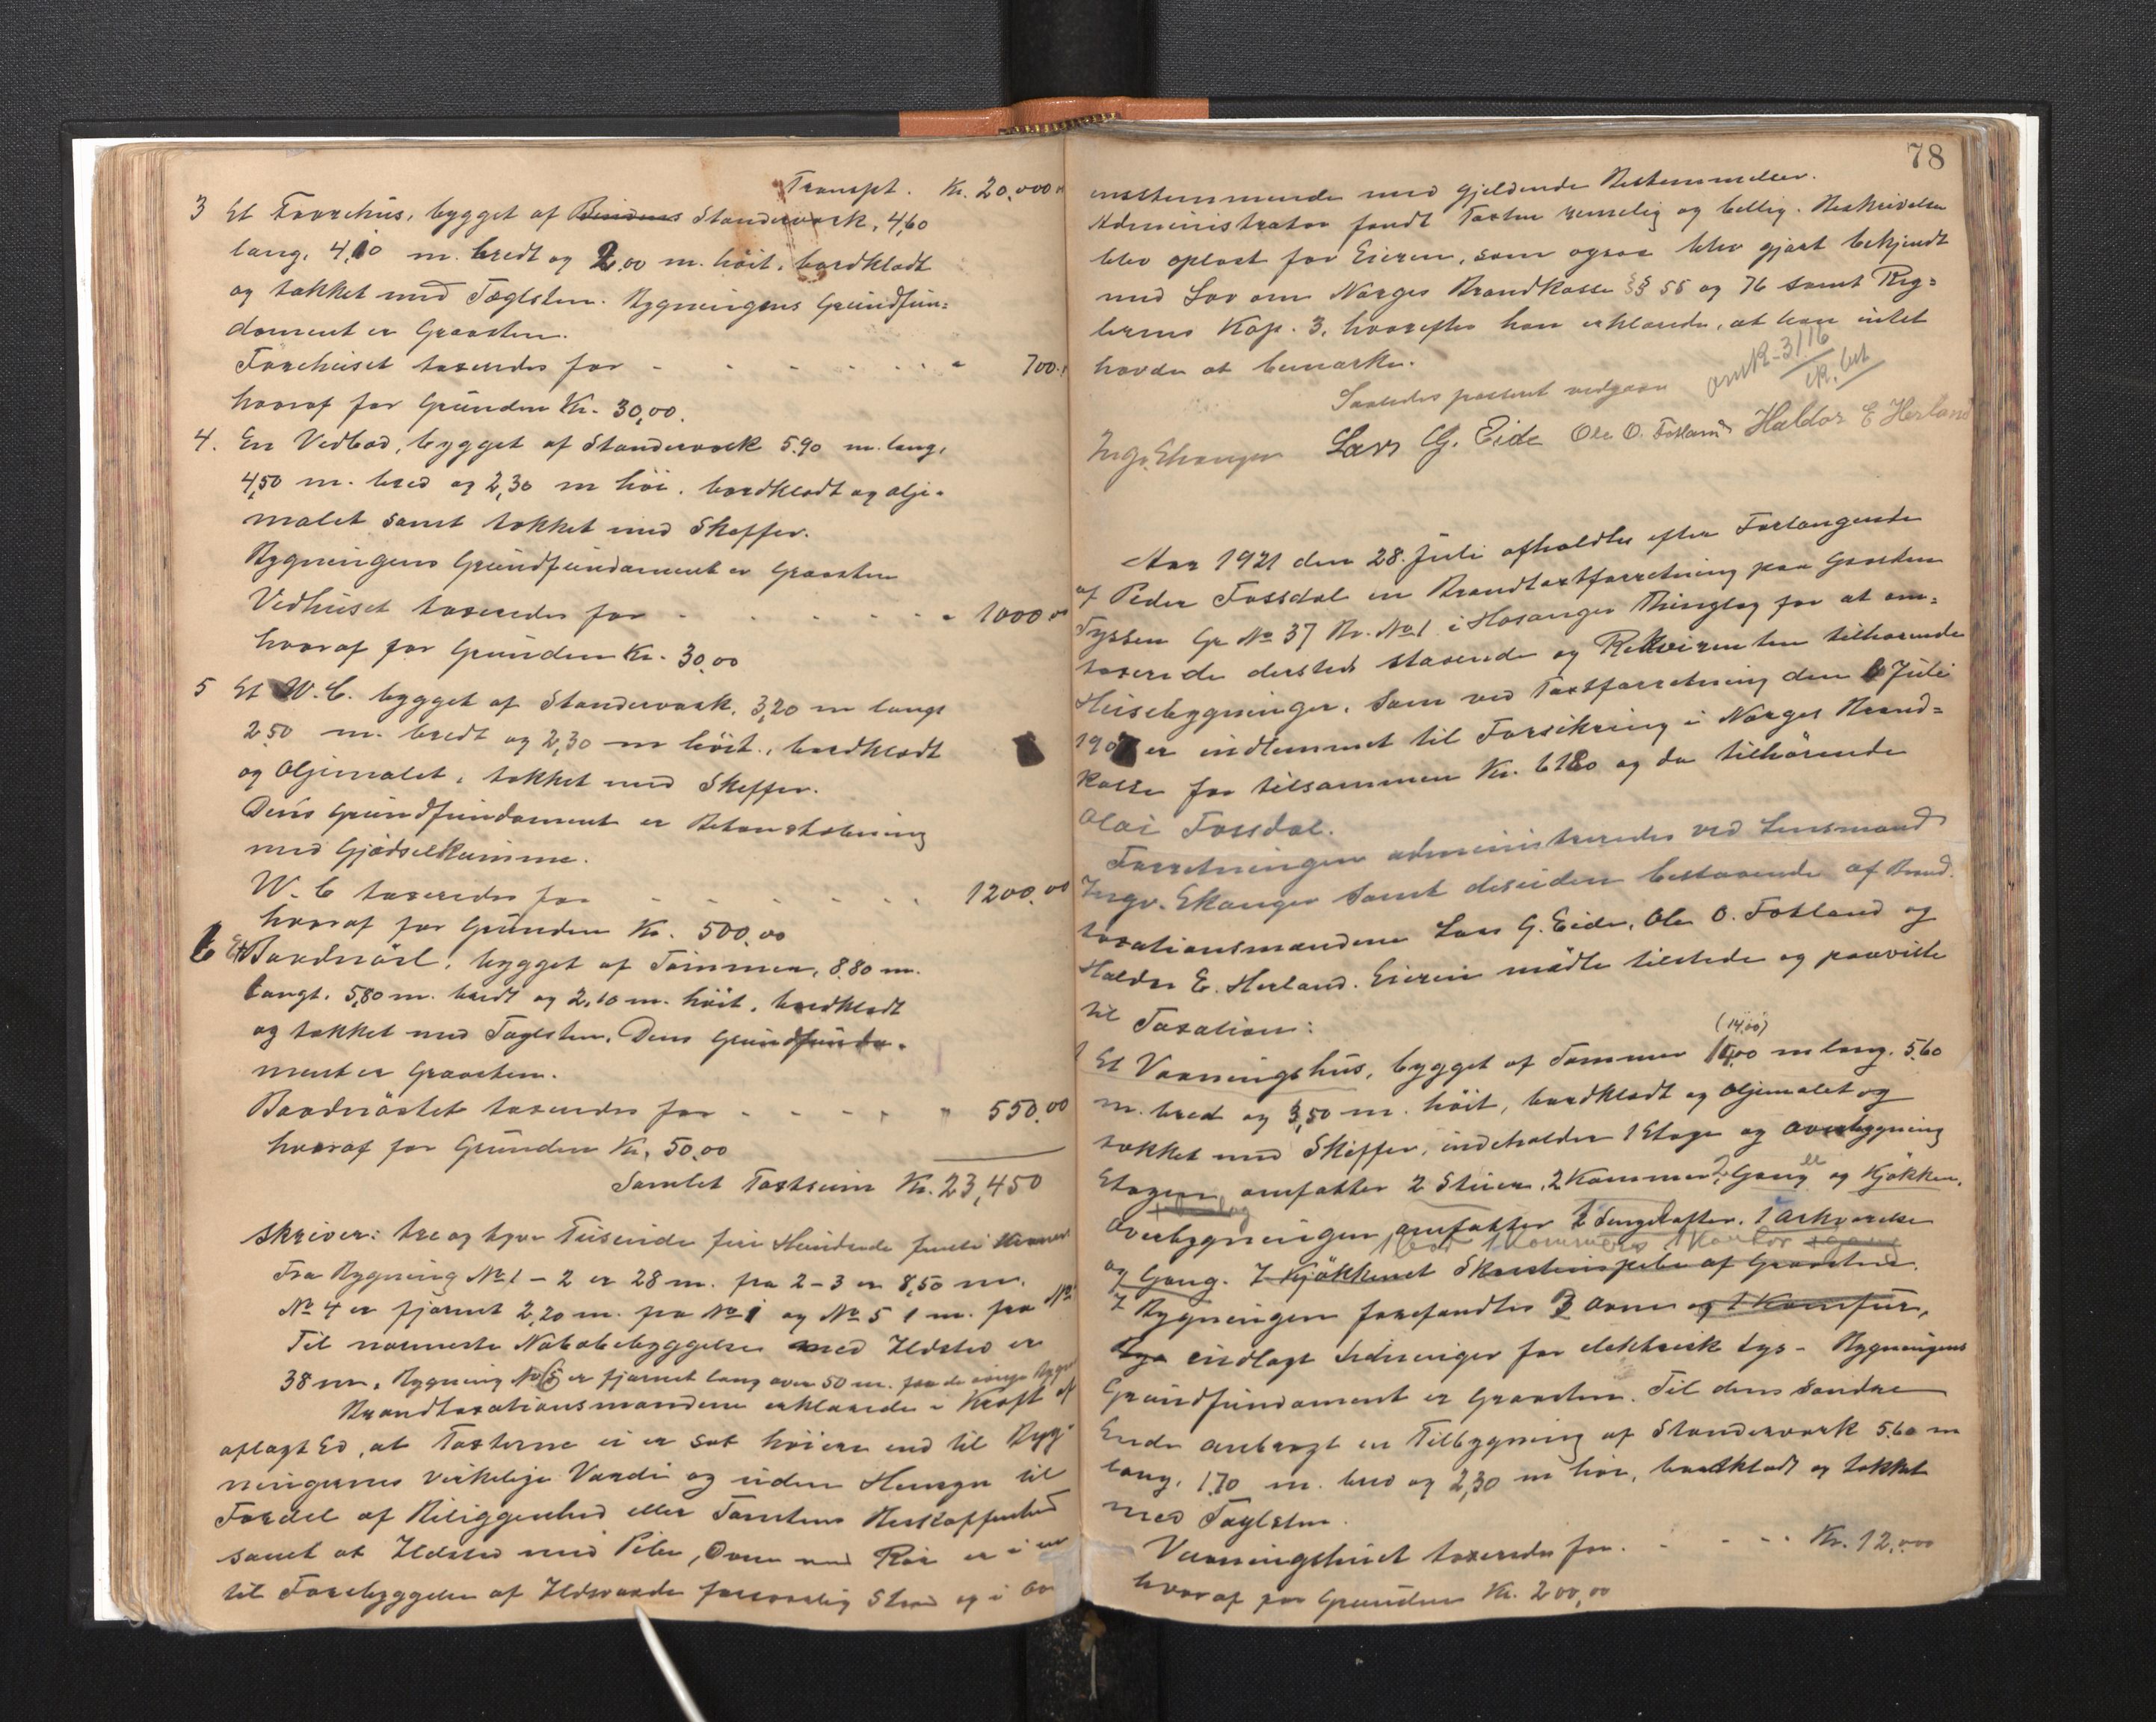 Transpt. Kr. 20,000 00
3 Et Foorehus, bygget af Bindens Standervork, 4,60
lang, 4,10 m. bredt og 2,00 m. höit, bordklædt
og tækket med Tæglsten. Bygningens Grundfun=
dament er Graasten.
Forehuset taxeredes for - - - - - - 700.
hvoraf for Grunden Kr. 30,00.
4. En Vedbod, bygget af Standervork 5,90 m. lang,
4,50 m. bred og 2,30 m höi, bordklædt og olje-
malet samt tækket med Skeffer.
Bygningens Grundfundament er Graasten
Vedhuset taxeredes for - - - - - 1000 00
hvoraf for Grunden Kr. 30,00
5 Et W.C. bygget af Standervork, 3,20 m langt
2,50 m. bredt og 2,30 m höit, bordklædt
og Oljemalet, tækket med Skeffer.
Dens Grundfundament er Betonstøbning
med Gjødselkumme.
W.C taxeredes for - - - - - 1200.00
hvoraf for Grunden Kr. 500,00
6 Et Baadnöst, bygget af Tömmer, 8,80 m.
langt, 5,80 m. bredt og 2,10 m. höit, bordklædt
og tækket med Taglsten. Dens Grundfunda-
ment er Graasten.
Baadnöstet taxeredes for - - - - " 550.00
hvoraf for Grunden Kr. 50,00
Samlet Taxtsum Kr. 23,450
skriver: tre og tyve Tusinde fire Hundrede femti Kroner
Fra Bygning No 1 - 2 er 28 m. fra 2-3 er 8,50 m.
No 4 er fjernet 2,20 m. fra No 1 og No 5 1 m. fra No
Til nærmeste Nabobebyggelse med Ildsted er
38 m. Bygning No 6 er fjernet lang over 50 m. fra de øvrige Bygn
Brandtaxationsmændene erklærede i Kraft af
aflagt Ed, at Taxterne ei er sat høiere end til Byg-
ningernes virkelige Værdi og uden Hensyn til
Fordel af Beliggenhed eller Tomtens Beskaffenhed
samt at Ildsted med Pibe, Ovne med Rör er i en
til Forebyggelse af Ildsvaade forsvarlig Stand og i ov
78
ensstemmende med gjeldende Bestemmelser.
Administrator fandt Taxten rimelig og billig. Beskrivelsen
blev oplæst for Eieren, som ogsaa blev gjort bekjendt
med Lov om Norges Brandkasse §§ 55 og 76 samt Reg=
lernes Kap. 3, hvorefter han erklærede, at han intet
havde at bemærke.
omk-3116
kr. bet
Saaledes passeret vedgaaes
Ingv. Ekanger Lars G. Eide Ole O. Fotland Haldor E Herland
Aar 1921 den 28. Juli afholdtes efter Forlangende
af Peder Fossdal en Brandtaxtforretning paa Gaarden
Tyssen Gr No 37 Br. No 1 i Hosanger Thinglag for at om=
taxerede dersteds staaende og Rekvirenten tilhørende
Husebygninger, som ved Taxtforretning den 6 Juli
190 er indlemmet til Forsikring i Norges Brand=
kasse for tilsammen Kr. 6180 og da tilhörende
Olai Fossdal.
Forretningen administreredes ved Lensmand
Ingv. Ekanger samt desuden bestaaende af Brand-
taxationsmændene Lars G. Eide, Ole O. Fotland og
Haldor E. Herland. Eieren mødte tilstede og paaviste
til Taxation:
(14,00)
1 Et Vaaningshus, bygget af Tømmer 15,00 m lang, 5,60
m. bred og 3,50 m. höit, bordklædt og Oljemalet og
tækket med Skeffer, indeholder 1 Etage og Overbygning
Etagen omfatter 2 Stuer, 2 Kammer, Gang og Kjøkken.
Overbygningen omfatter 2 Sengelofter, 1 Arkværelse
og Gang. I Kjøkkenet Skorstenspibe af Graasten.
I Bygningen forefandtes 3 Ovne og 1 Komfur,
Lys indlagt Ledninger for elektrisk Lys - Bygningens
Grundfundament er Graasten. Til dens söndre
Ende anbragt en Tilbygning af Standervork 5,60 m
lang, 1,70 m. bred og 2,30 m höi, bordklædt og tækket
med Taglsten.
Vaaningshuset taxeredes for - - - - Kr. 12,000
hvoraf for Grunden Kr. 200,00